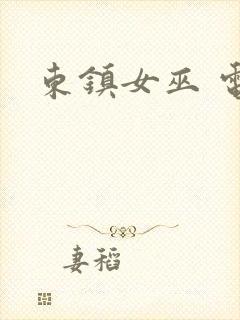 東鎮女巫 電
妻稻